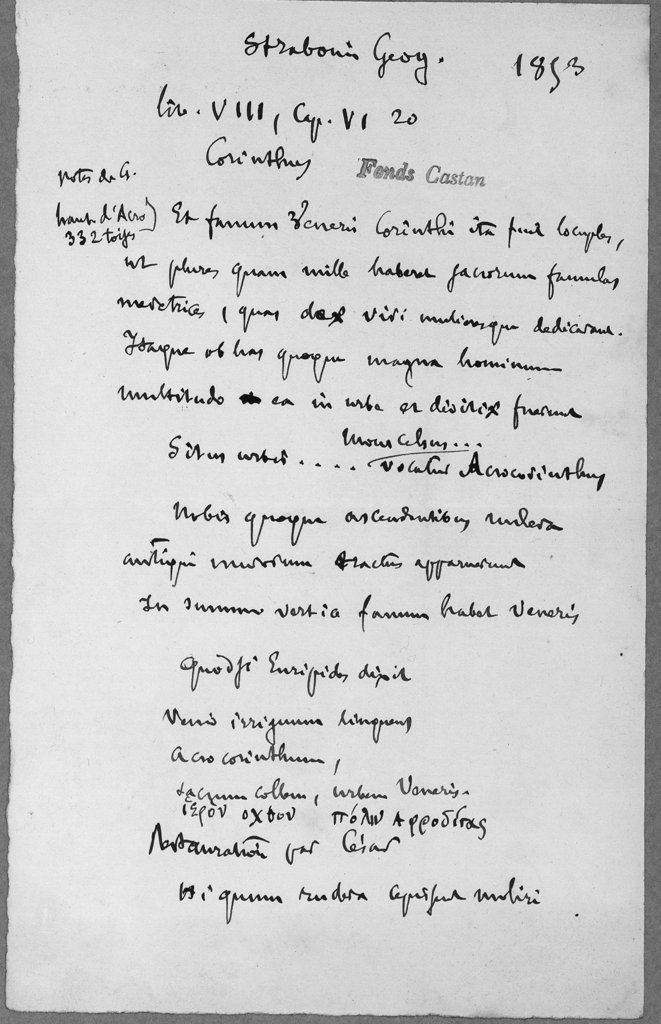 Strabonis Geog. 1853
lib. VIII, Cap. VI 20
Corinthus
Fonds Castan
notes de G.
haut. d'Acro) 332 toises
Et fanum Veneris Corinthi ita fuit locuples,
ut plures quam mille haberet sacrorum famulas
meretrices, quas deæ viri mulieresque dedicarant.
Itaque ob has quoque magna hominum
multitudo ea in urbe et divitiæ fuerunt
Situs urbis .... Mons celsus...
vocatur Acrocorinthus
Nobis quoque ascendentibus rudera
antiqui murorum tractus apparuerunt
In summo vertice fanum habet Veneris
Quod si Euripides dixit
Venio irriguum linquens
Acrocorinthum,
sacrum collem, urbem Veneris.
ἱερὸν οχθον πόλιν Αφροδίτας
Restauration par César
Hi quum rudera cepissent moliri